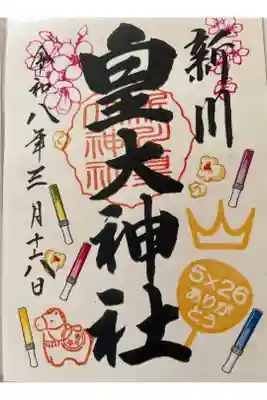 新川
皇大神社
令和八年三月十八日
5×26
ありが
とう